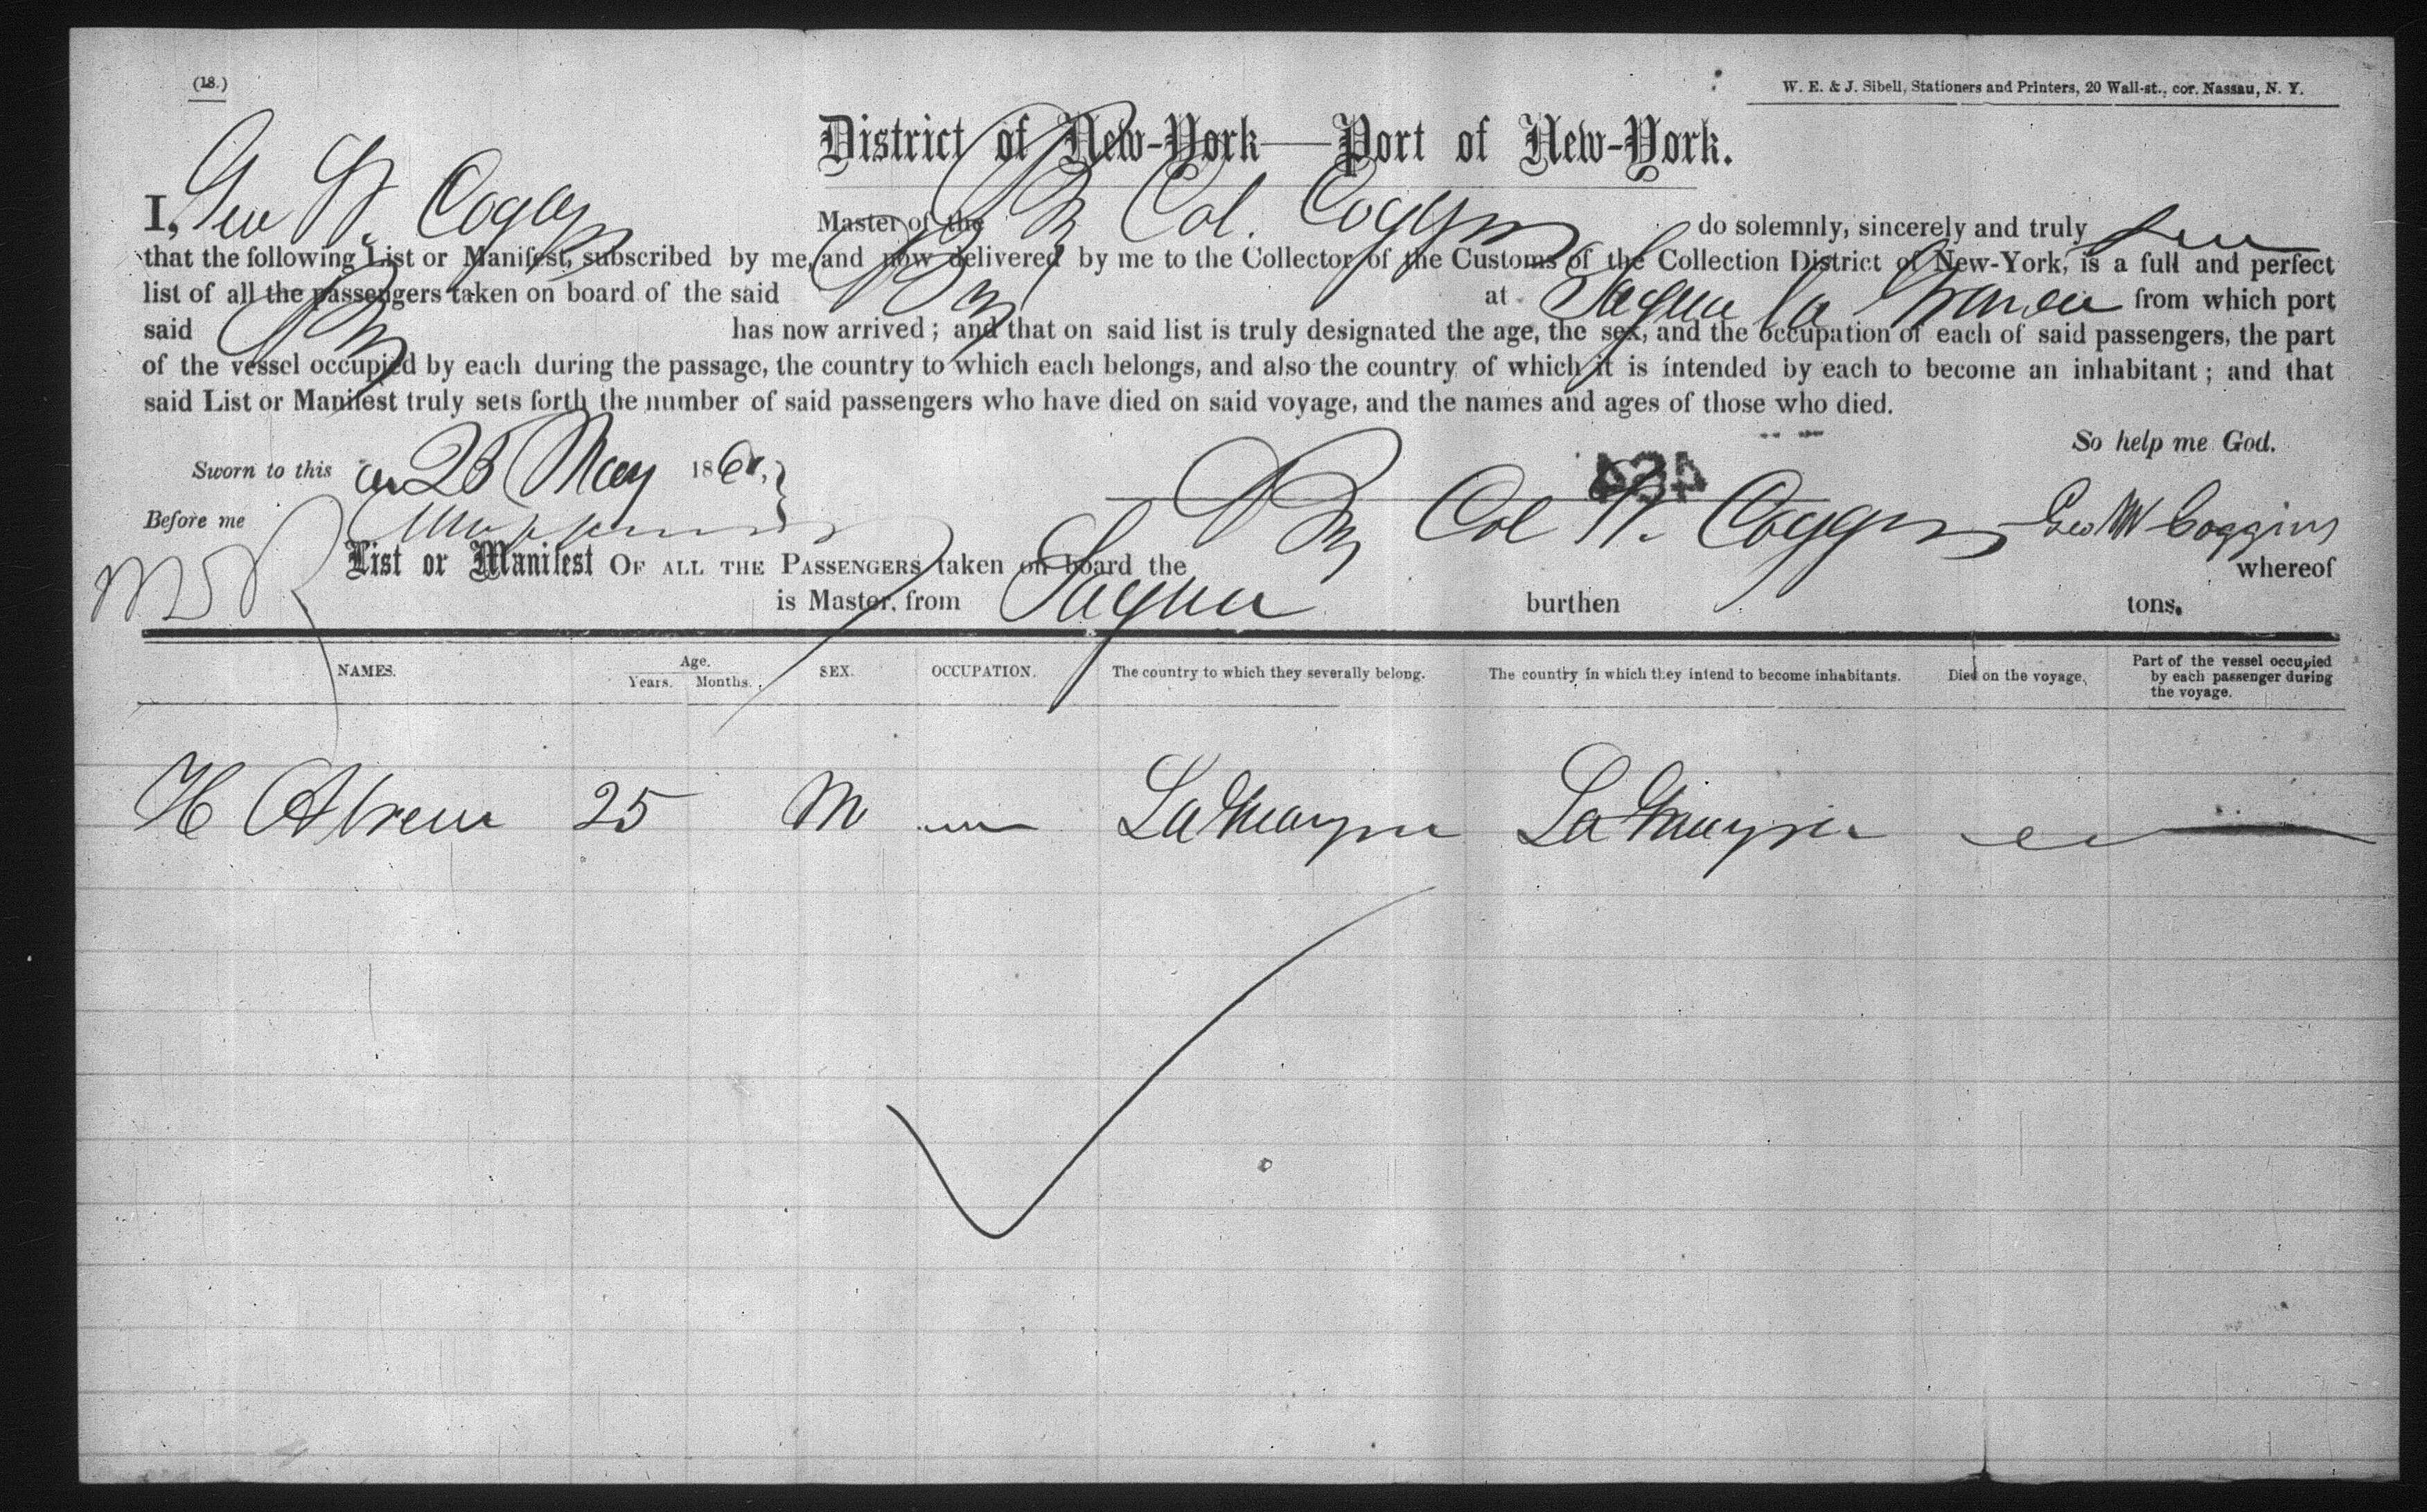 (18.)
W. E. & J. Sibell, Stationers and Printers, 20 Wall-st., cor. Nassau, N. Y.
District of New-York—Port of New-York.
I, Geo W. Coggins Master of the Col. Coggins do solemnly, sincerely and truly
that the following List or Manifest, subscribed by me, and now delivered by me to the Collector of the Customs of the Collection District of New-York, is a full and perfect
list of all the passengers taken on board of the said at Sagua la Grande from which port
said has now arrived; and that on said list is truly designated the age, the sex, and the occupation of each of said passengers, the part
of the vessel occupied by each during the passage, the country to which each belongs, and also the country of which it is intended by each to become an inhabitant; and that
said List or Manifest truly sets forth the number of said passengers who have died on said voyage, and the names and ages of those who died.
So help me God.
Sworn to this 25 May 186
434
Before me
Geo W Coggins
List or Manifest OF ALL THE PASSENGERS taken on board the Col W. Coggins whereof
is Master, from Sagua burthen tons.
NAMES. Age. Years. Months. SEX. OCCUPATION. The country to which they severally belong. The country in which they intend to become inhabitants. Died on the voyage. Part of the vessel occupied by each passenger during the voyage.
H Abreu 25 M